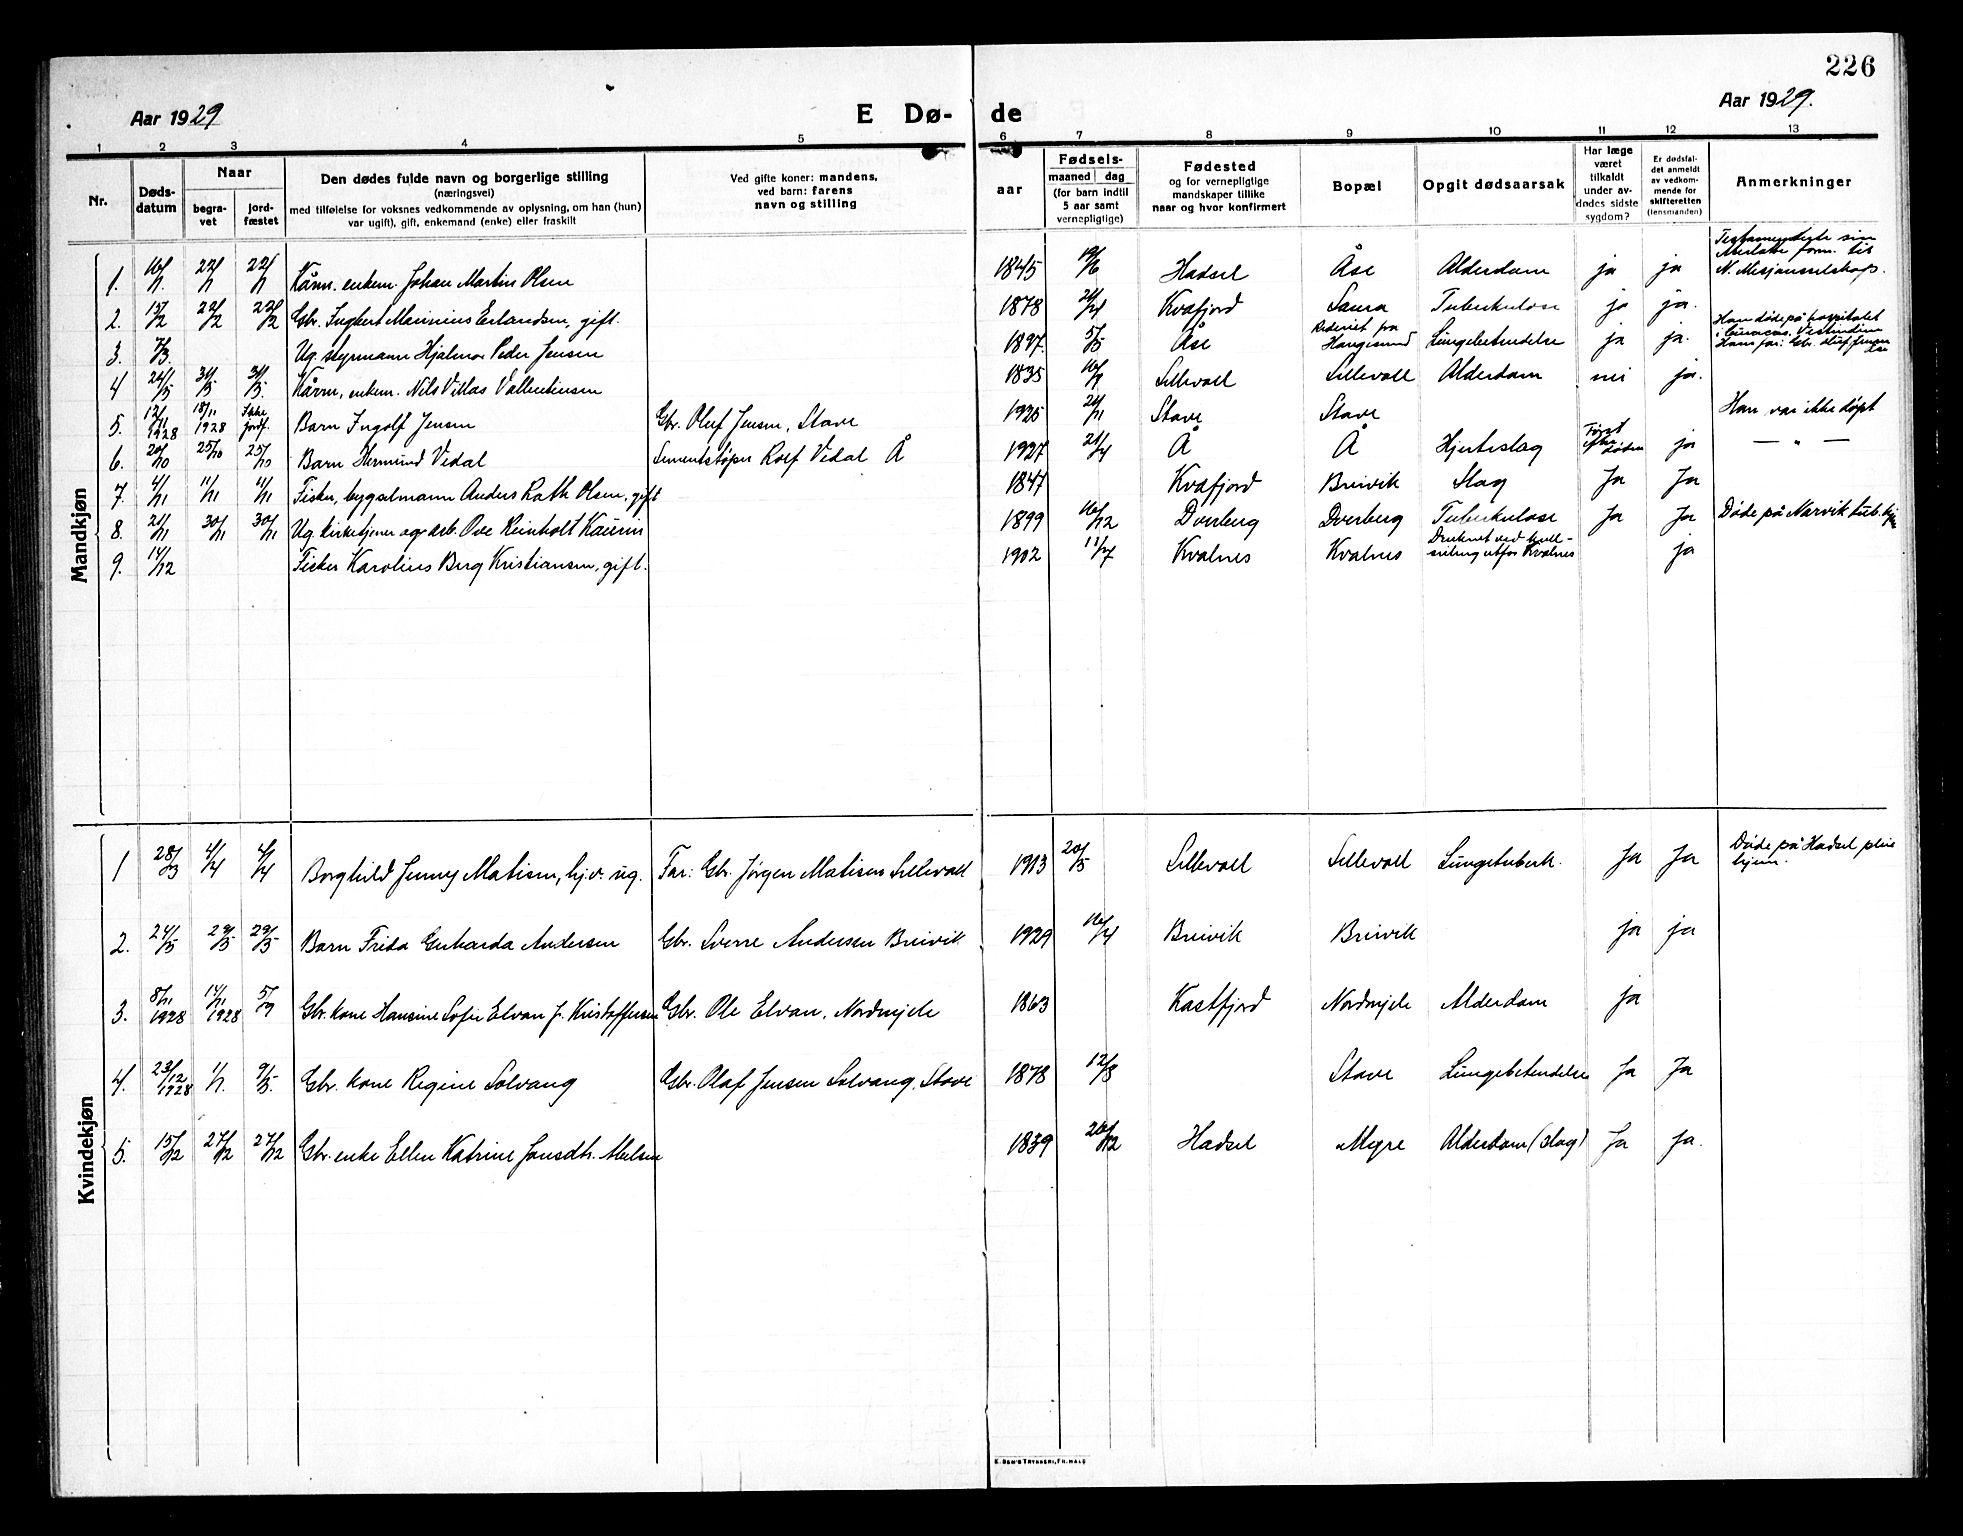 226
Aar 1929
E Dø- de
Aar 1929.
1 2 3 4 5 6 7 8 9 10 11 12 13
Nr.
Døds-
datum
Naar
begra-
vet
jord-
fæstet
Den dødes fulde navn og borgerlige stilling
(næringsvei)
med tilføielse for voksnes vedkommende av oplysning, om han (hun)
var ugift), gift, enkemand (enke) eller fraskilt
Ved gifte koner: mandens,
ved barn: farens
navn og stilling
aar
Fødsels-
maaned dag
(for barn indtil
5 aar samt
vernepligtige)
Fødested
og for vernepligtige
mandskaper tillike
naar og hvor konfirmert
Bopæl
Opgit dødsaarsak
Har læge
været
tilkaldt
under av-
dødes sidste
sygdom?
Er dødsfal-
det anmeldt
av vedkom-
mende for
skifteretten
(lensmanden)
Anmerkninger
Mandkjøn
1. 16/1. 22/1 22/1 Kårm. enkem. Johan Martin Olsen 1845 19/6 Hadsel Åse Alderdom ja ja N. Misjonsselskap.
2. 15/2 22/2 22/2 Gbr. Ingbert Marinius Erlandsen, gift. 1878 Kvæfjord Saura Tuberkulose ja ja.
3. 7/3. Ug. styrmann Hjalmar Peder Jensen 1897. 5/5 Åse Haugesund Lungebetendelse ja ja. Han døde på hospitalet
4 24/5 31/5 31/5. Kårm, enkem. Nils Villas Vallentinsen 1835 16/9 Sellevoll Sellevoll Alderdom nei ja.
5. 12/11 1928 18/11 1928 Ikke jordf. Barn Ingolf Jensen Gbr. Oluf Jensen, Stave 1925 Stave Stave Han var ikke døpt
6. 20/10 25/10 25/10 Barn Hermund Vedal Sementstøper Rolf Vedal Å 1927 21/4 Å Å Hjerteslag Først efter døden ja — " —
7. 4/11 11/11 11/11 Fisker, bygselmann Anders Rath Olsen, gift 1847 Kvæfjord Breivik Slag Ja Ja
8. 21/11 30/11 30/11 Ug. kirketjener og arb. Ove Reinholt Kaurin 1899 16/12 Dverberg Dverberg Tuberkulose Ja Ja Døde på Narvik tub. hjem
9. 14/12 Fisker Karolius Berg Kristiansen, gift. 1902 11/7 Kvalnes Kvalnes Druknet ved kullseiling utfor Kvalnes ja
Kvindekjøn
1 28/3 4/4 4/4 Borghild Jenny Matisen, hj.v. ug. Far: Gbr. Jørgen Matisen Sellevoll 1913 20/5 Sellevoll Sellevoll Lungetuberk. Ja Ja Døde på Hadsel pleie
hjem.
2. 24/5 29/5 29/5 Barn Frida Gerharda Andersen Gbr. Sverre Andersen Breivik 1929 16/4 Breivik Breivik ja ja
3. 8/11 1928 14/11 1928 5/9 Gbr. kone Hansine Sofie Elvan f. Kristoffersen Gbr. Ole Elvan, Nordmjele 1863 Kastfjord Nordmjele Alderdom ja
4. 23/12 1928 1/1. 9/5. Gbr. kone Regine Solvang Gbr. Olaf Jensen Solvang, Stave 1878 12/8 Stave Lungebetendelse Ja Ja
5. 15/12 27/12 27/12 Gbr. enke Ellen Katrine Jonsdtr. 1839 Hadsel Myre Alderdom (slag) Ja ja.